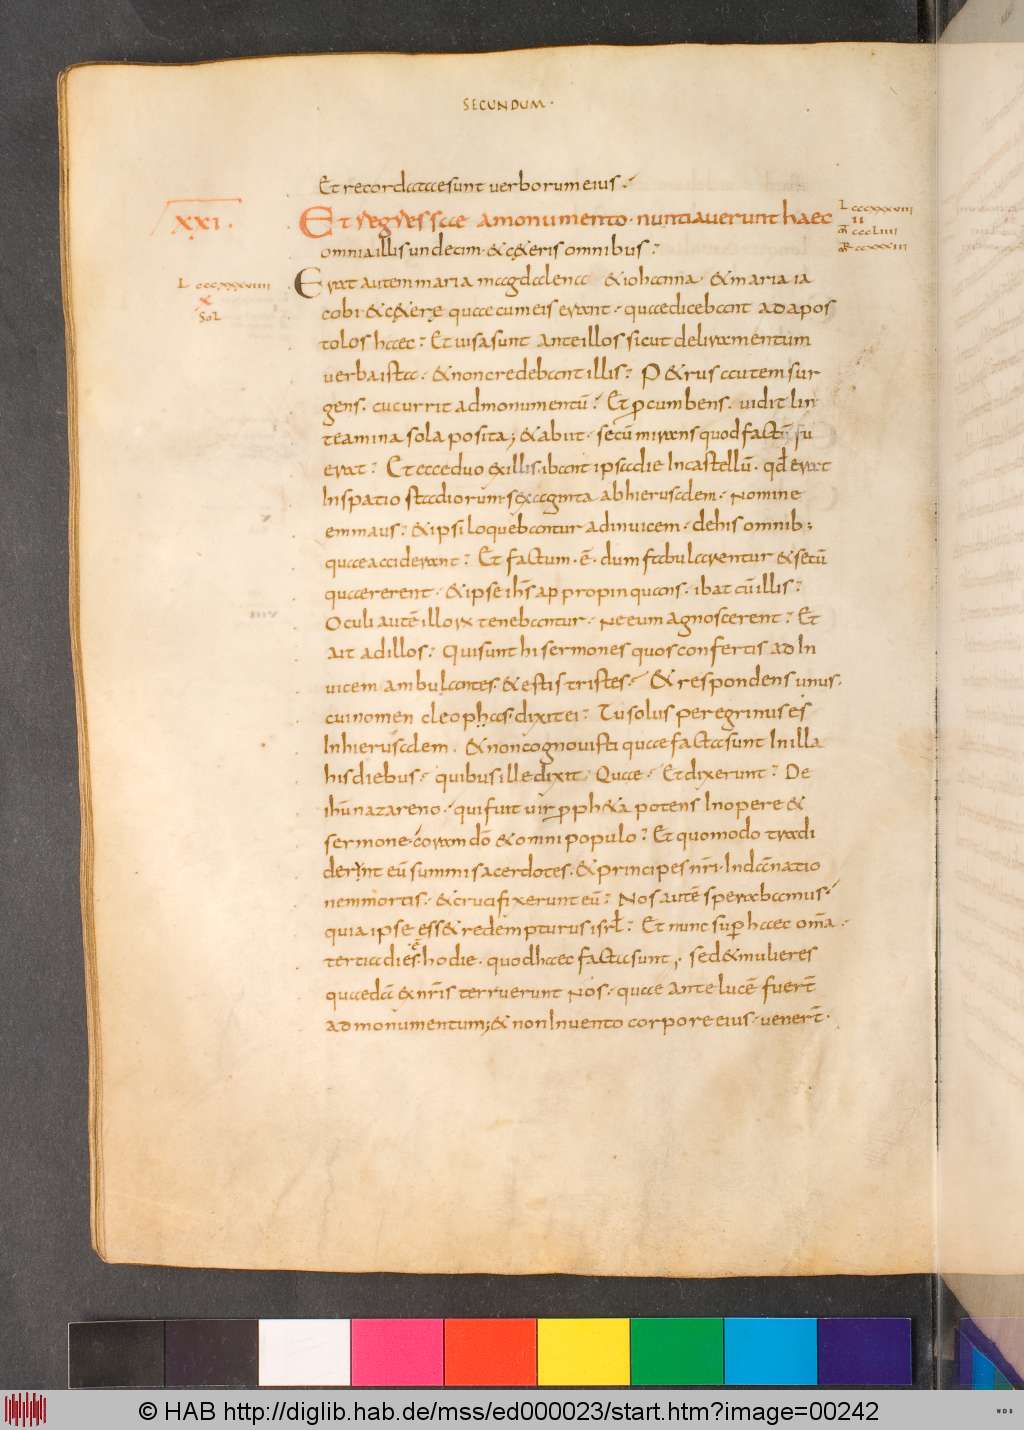 SECUNDUM ·
Et recordatae sunt verborum eius ·
XXI ·
Et regressae a monumento · nuntiaverunt haec
L cccxxxviii
II
M cccliiii
MR ccxxxiii
omnia illis undecim · & c&eris omnibus :
L cccxxxviiii
X
Sol
Erat autem maria magdalena & iohanna · & maria ia
cobi · & c&erę quae cum eis erant · quae dicebant ad apos
tolos haec : Et visa sunt ante illos sicut deliramentum
verba ista · & non credebant illis : P&rus autem sur
gens · cucurrit ad monumentū : Et procumbens · vidit lin
teamina sola posita ; & abiit · secū mirans quod factū fu
erat : Et ecce duo ex illis · ibant ipsa die In castellū · qđ erat
In spatio stadiorum · sexaginta ab hierusalem · Nomine
emmaus : & ipsi loquebantur ad invicem · de his omnib;
quae acciderant : Et factum · ē · dum fabularentur & secū
quaererent · & ipse ihs appropinquans · ibat cū illis :
Oculi autē illorx tenebantur · Ne eum agnoscerent : Et
ait ad illos : Qui sunt hi sermones quos confertis ad In
vicem ambulantes · & estis tristes · & respondens unus ·
cui nomen cleophas · dixit ei : Tu solus peregrinus es
In hierusalem · & non cognovisti quae facta sunt In illa
his diebus · quibus ille dixit · Quae · Et dixerunt : De
ihu nazareno · qui fuit vir proph&a potens In opere &
sermone · coram dō & omni populo : Et quomodo tradi
derunt eū summi sacerdotes · & principes nri · In damnatio
nem mortis · & crucifixerunt eū : Nos autē sperabamus ·
quia ipse ess& redempturus isrł : Et nunc super haec oma ·
tertia dies · hodie · quod haec facta sunt · sed & mulieres
quaedā & nris terruerunt Nos · quae ante lucē fuert
ad monumentum ; & non Invento corpore eius · venert ·
© HAB http://diglib.hab.de/mss/ed000023/start.htm?image=00242